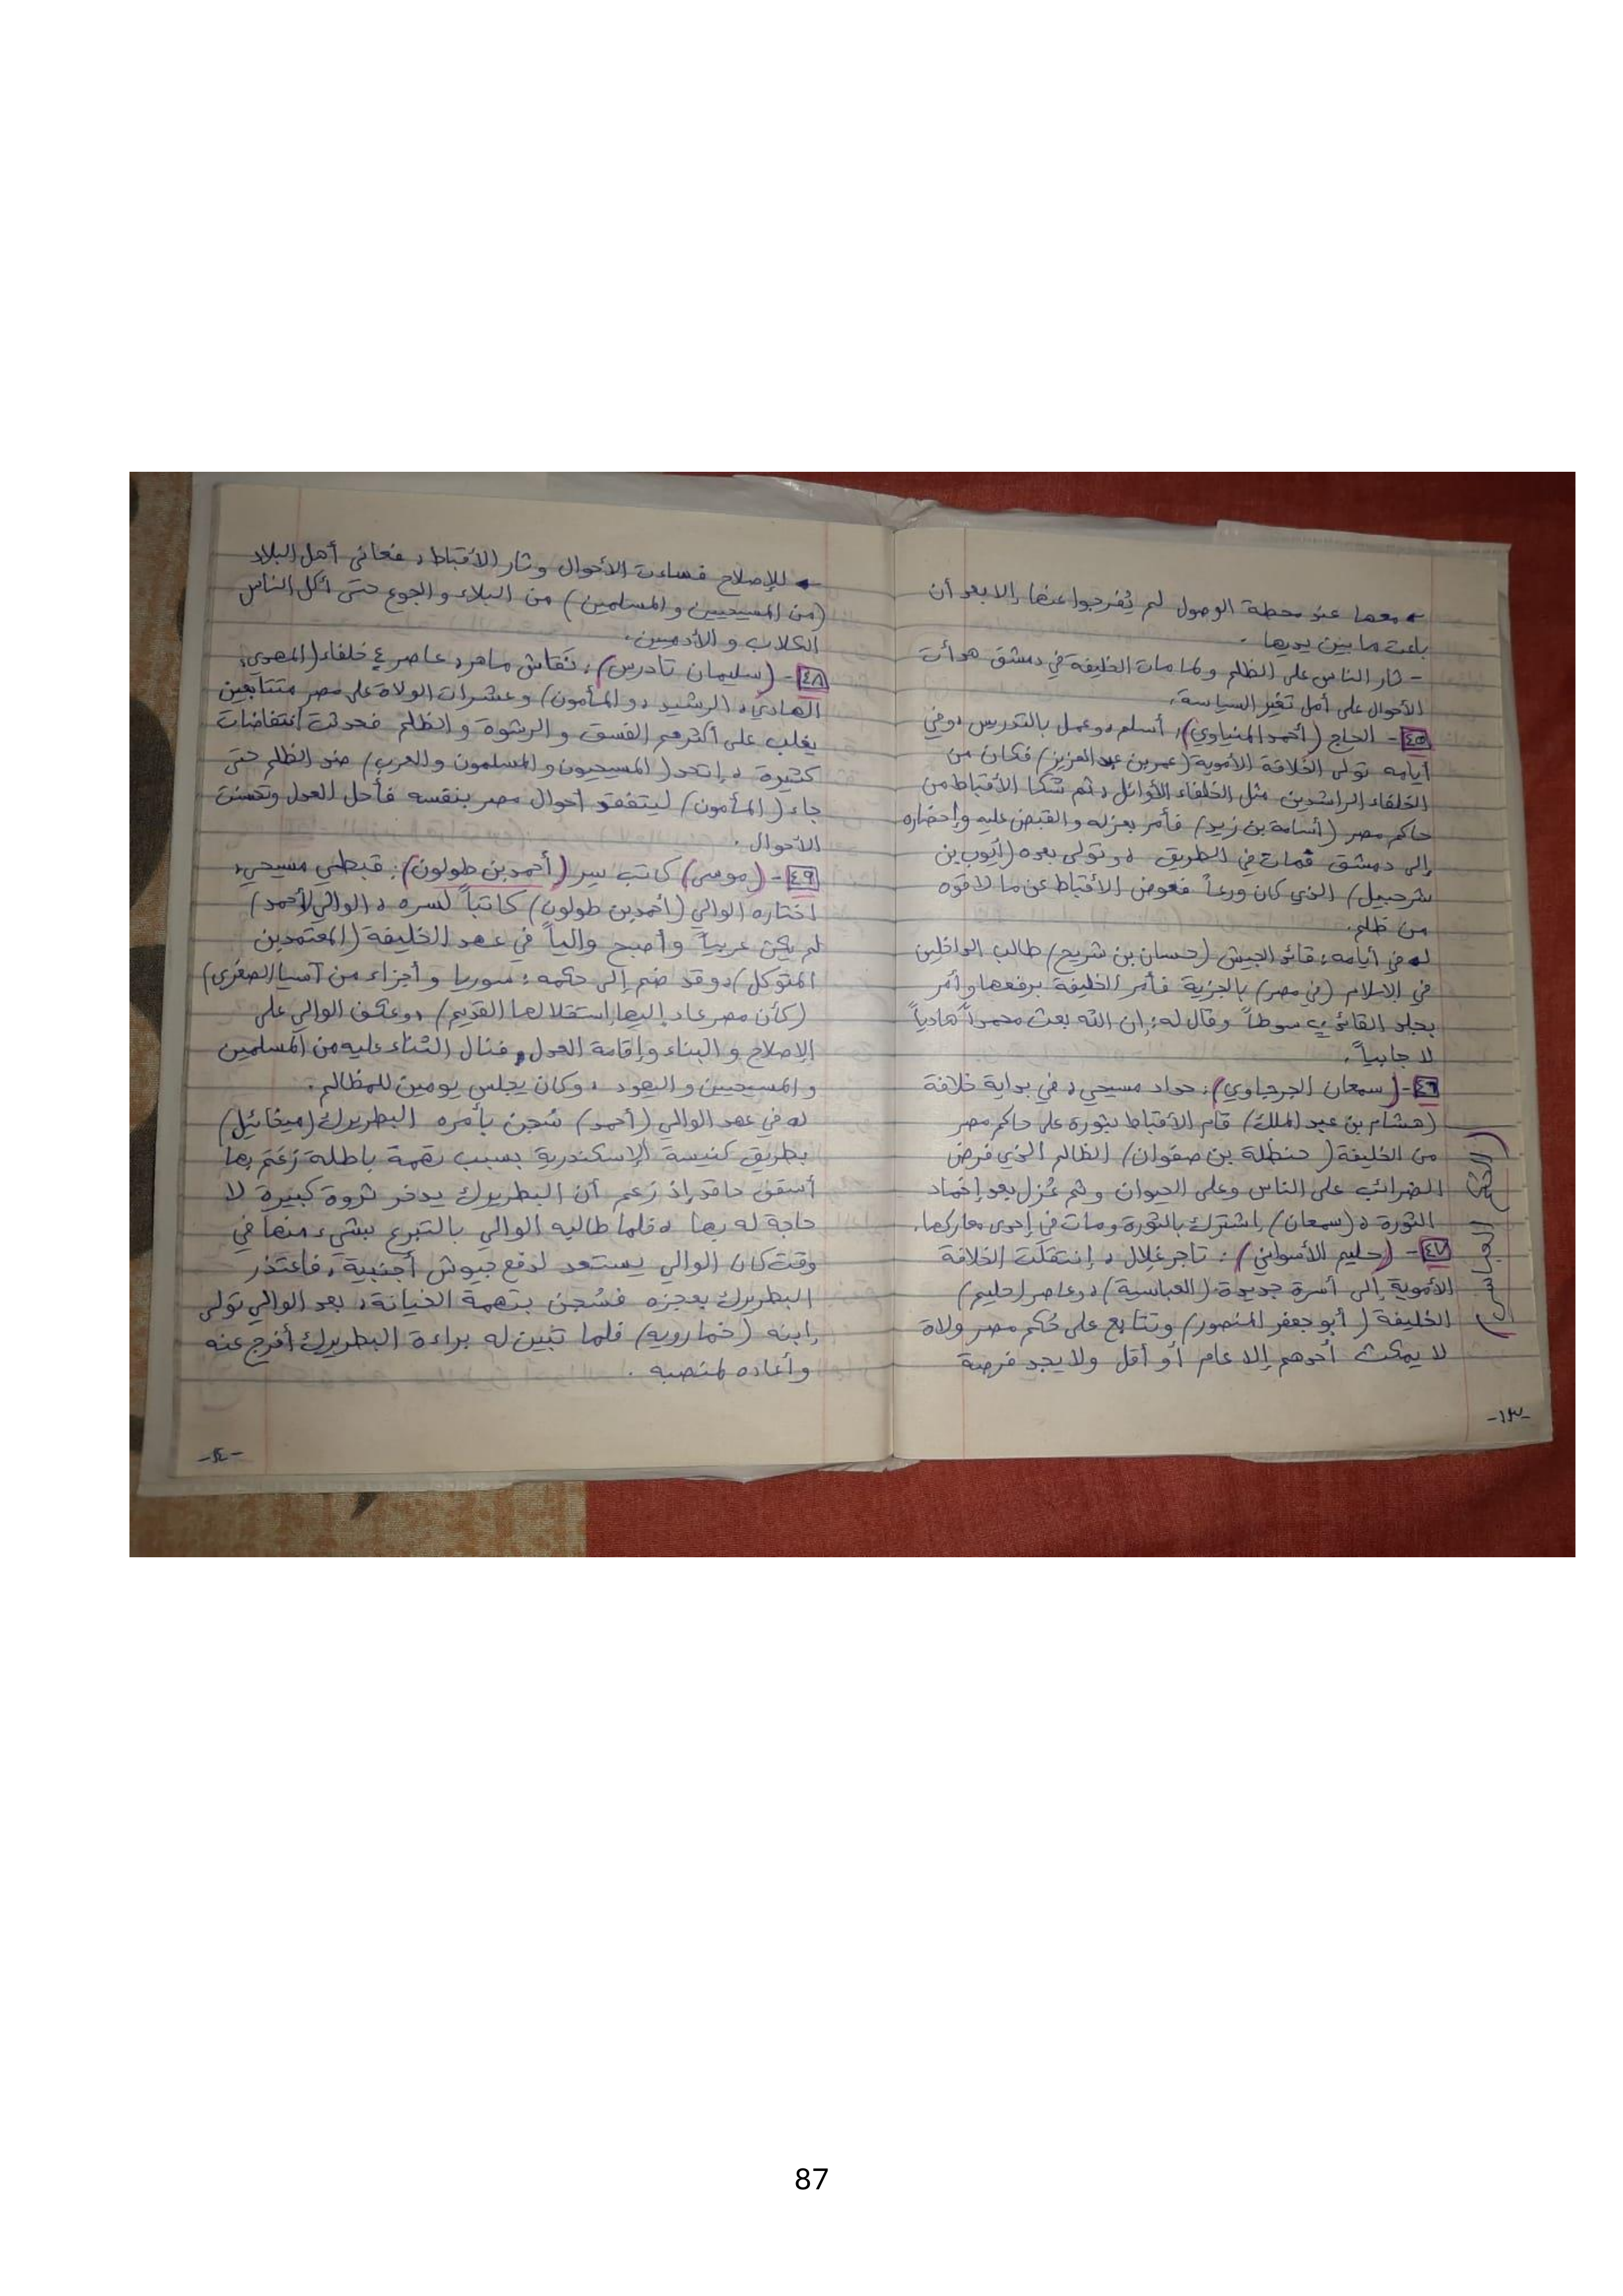 ← معها عند محطة الوصول لم يُفرجوا عنها إلا بعد أن
باعت ما بين يديها .
- ثار الناس على الظلم ولما مات الخليفة في دمشق هدأت
الأحوال على أمل تغير السياسة.
٤٥ - الحاج (أحمد المنياوي): أسلم وعمل بالتدريس وفي
أيامه تولى الخلافة الأموية (عمر بن عبد العزيز) فكان من
الخلفاء الراشدين مثل الخلفاء الأوائل، ثم شكا الأقباط من
حاكم مصر (أسامة بن زيد) فأمر بعزله والقبض عليه وإحضاره
إلى دمشق فمات في الطريق، وتولى بعده (أيوب بن
شرحبيل) الذي كان ورعاً فعوض الأقباط عن ما لاقوه
من ظلم.
في أيامه: قائد الجيش (حسان بن شريح) طالب الداخلين
في الإسلام (في مصر) بالجزية فأمر الخليفة برفعها وأمر
بجلد القائد سوطاً وقال له: إن الله بعث محمداً هادياً
لا جابياً.
٤٦ - (سمعان الجرجاوي): حداد مسيحي، في بداية خلافة
(هشام بن عبد الملك) قام الأقباط بثورة على حاكم مصر
من الخليفة (حنظلة بن صفوان) الظالم الذي فرض
الضرائب على الناس وعلى الحيوان وثم عُزل بعد إخماد
الثورة، (سمعان) اشترك بالثورة ومات في إحدى معاركها.
٤٧ - (حليم الأسواني): تاجر غلال، إنتقلت الخلافة
الأموية إلى أسرة جديدة (العباسية)، وعاصر (حليم)
الخليفة (أبو جعفر المنصور) وتتابع على حُكم مصر ولاة
لا يمكث أحدهم إلا عام أو أقل ولا يجد فرصة
-١٣-
← للإصلاح فساءت الأحوال وثار الأقباط، فعانى أهل البلاد
(من المسيحيين والمسلمين) من البلاء والجوع حتى أكل الناس
الكلاب والآدميين.
٤٨ - (سليمان تادرس): نقاش ماهر، عاصر ٤ خلفاء (المهدي،
الهادي، الرشيد، والمأمون) وعشرات الولاة على مصر متتابعين
يغلب على أكثرهم الفسق والرشوة والظلم فحدثت انتفاضات
كثيرة، إتحد (المسيحيون والمسلمون والعرب) ضد الظلم حتى
جاء (المأمون) ليتفقد أحوال مصر بنفسه فأحل العدل وتحسنت
الأحوال.
٤٩ - (موسى) كاتب سر (أحمد بن طولون): قبطي مسيحي،
اختاره الوالي (أحمد بن طولون) كاتباً لسره، الوالي (أحمد)
لم يكن عربياً وأصبح والياً في عهد الخليفة (المعتمد بن
المتوكل)، وقد ضم إلى حكمه: سوريا وأجزاء من آسيا الصغرى)
(كأن مصر عاد إليها استقلالها القديم)، وعكف الوالي على
الإصلاح والبناء وإقامة العدل، فنال الثناء عليه من المسلمين
والمسيحيين واليهود، وكان يجلس يومين للمظالم.
في عهد الوالي (أحمد) سُجن بأمره البطريرك (ميخائيل)
بطريق كنيسة الإسكندرية بسبب تهمة باطلة زعم بها
أسقف حاقد إذ زعم أن البطريرك يدخر ثروة كبيرة لا
حاجة له بها، فلما طالبه الوالي بالتبرع بشيء منها في
وقت كان الوالي يستعد لدفع جيوش أجنبية، فاعتذر
البطريرك بعجزه فسُجن بتهمة الخيانة، بعد الوالي تولى
إبنه (خمارويه) فلما تبين له براءة البطريرك أفرج عنه
وأعاده لمنصبه .
-١٤-
87